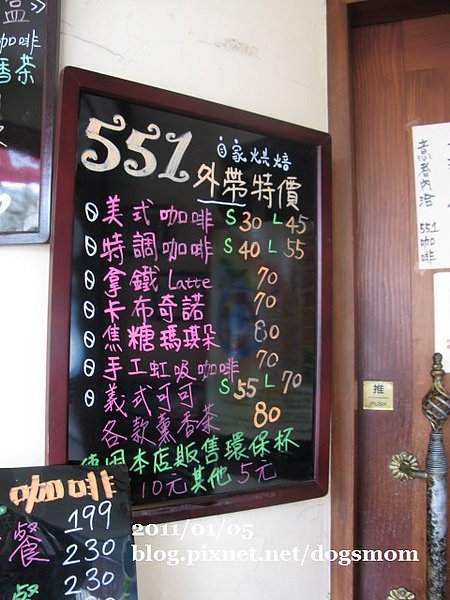 盒》
咖啡
香茶
551 自家烘焙
外帶特價
美式咖啡 S30 L45
特調咖啡 S40 L55
拿鐵 Latte 70
卡布奇諾 70
焦糖瑪琪朵 80
手工虹吸咖啡 70
義式可可 S55 L70
各款熏香茶 80
使用本店販售環保杯
10元其他5元
咖啡
199
餐 230
230
餐
意者內洽
551
咖
啡
推
PUSH
2011/01/05
blog.pixnet.net/dogsmom